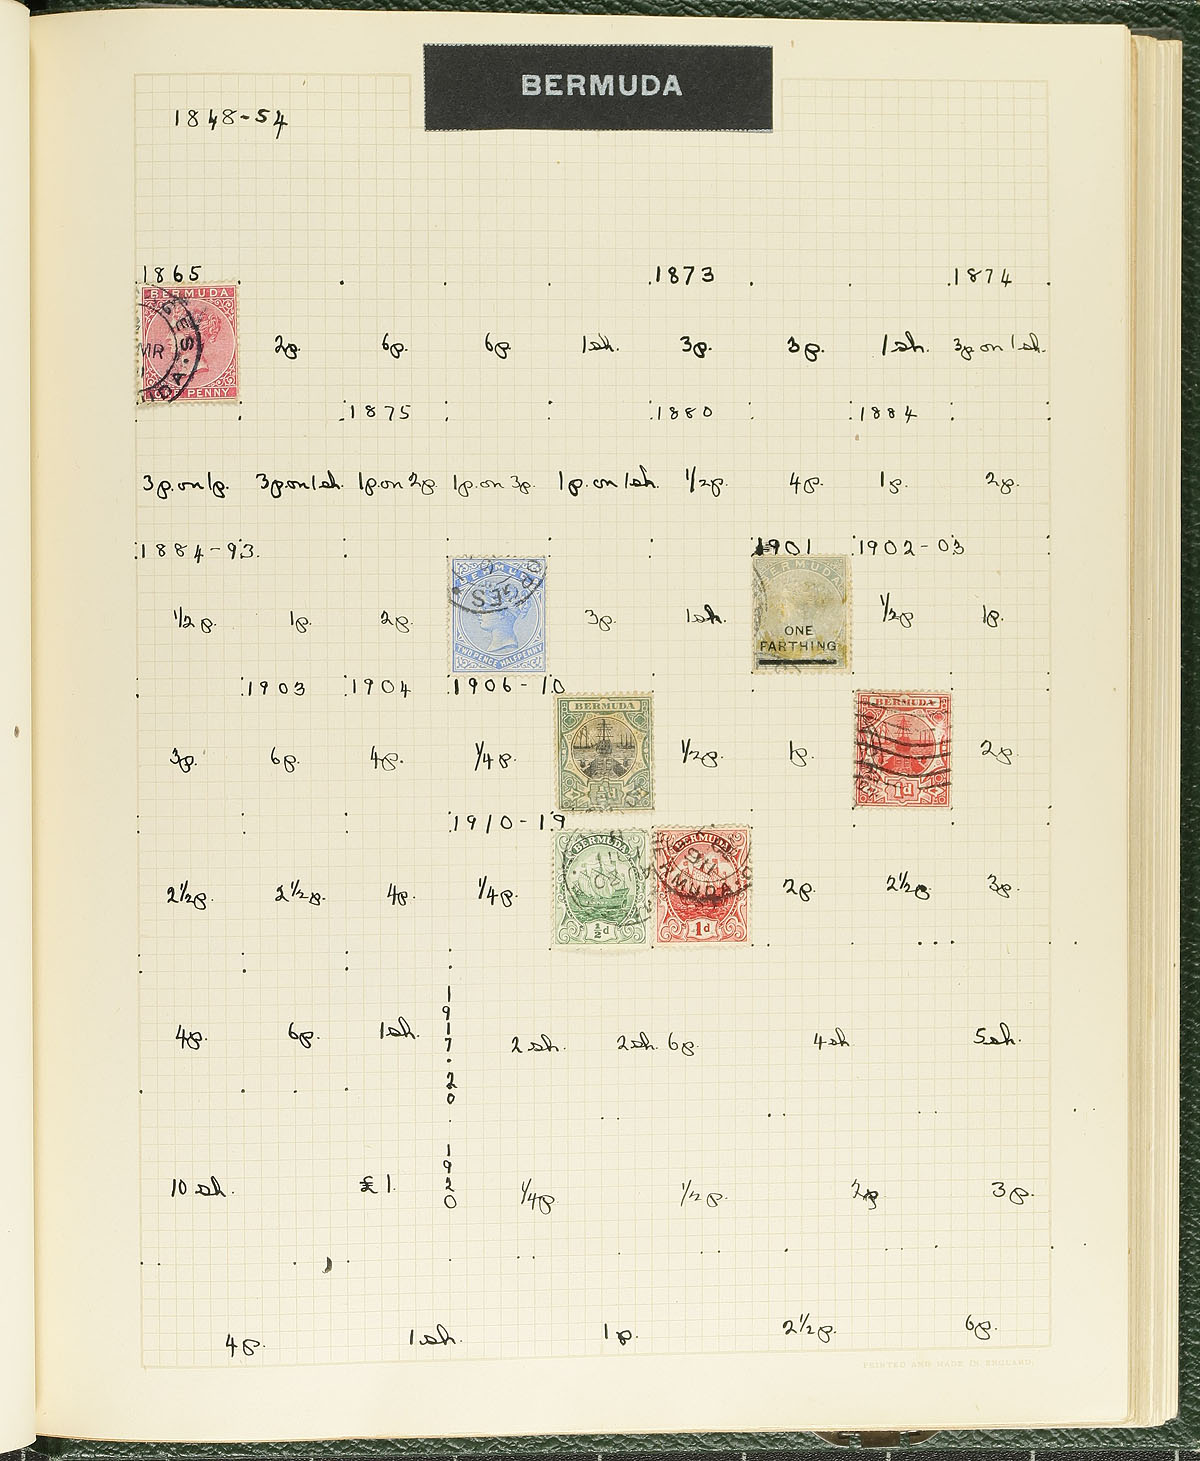 BERMUDA
1848-54
1865 1873 1874
BERMUDA
MR
ONE PENNY
2p. 6p. 6p 1sh. 3p. 3p. 1sh. 3p on 1sh.
1875 1880 1884
3p. on 1p. 3p on 1sh. 1p. on 2p. 1p. on 3p. 1p. on 1sh. 1/2p. 4p. 1p. 2p.
1884-93. 1901 1902-03
½p. 1p. 2p. 3p. 1sh. ½p 1p.
BERMUDA
GES
TWO PENCE HALFPENNY
BERMUDA
ONE
FARTHING
1903 1904 1906-10
BERMUDA
BERMUDA
1d
3p. 6p. 4p. ¼p. ½p. 1p. 2p.
1910-19
BERMUDA
½d
BERMUDA
1d
2½p. 2½p. 4p. ¼p. 2p. 2½p. 3p.
4p. 6p. 1sh. 1917.20 2sh. 2sh. 6p. 4sh 5sh.
10 sh. £1. 1920 ¼p. ½p. 2p 3p.
4p. 1sh. 1p. 2½p. 6p.
PRINTED AND MADE IN ENGLAND.